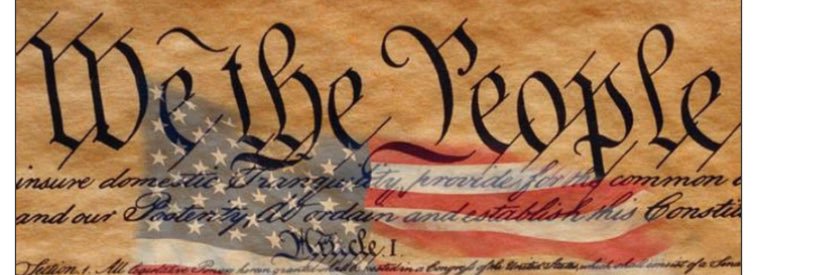 We the People
insure domestic Tranquility, provide for the common
and our Posterity, do ordain and establish this Constit
Article. I.
Section. 1. All legislative Powers herein granted shall be vested in a Congress of the United States, which shall consist of a Sena